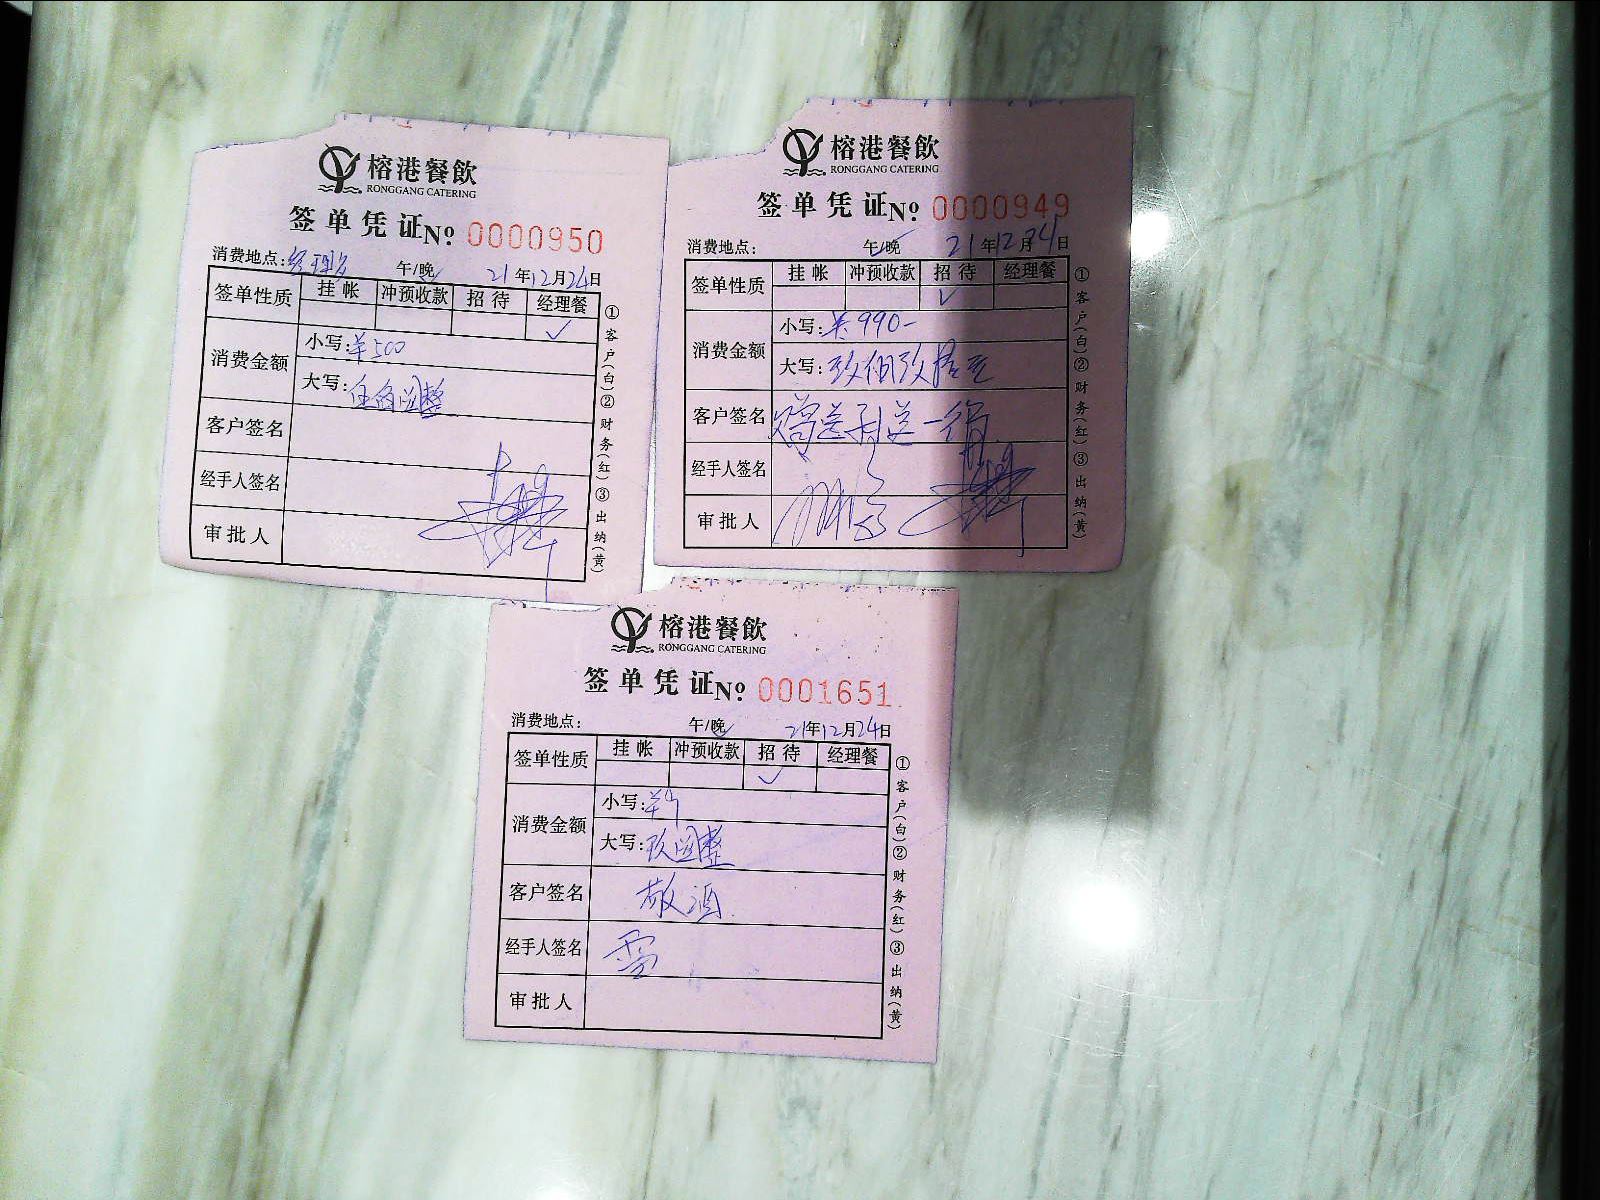 榕港餐飲
RONGGANG CATERING
签单凭证No 0000950
消费地点: 午/晚 21年12月24日
签单性质 挂帐 冲预收款 招待 经理餐
✓
消费金额 小写:¥500
大写:伍佰圆整
客户签名
经手人签名
审批人
①客户(白)②财务(红)③出纳(黄)
榕港餐飲
RONGGANG CATERING
签单凭证No 0000949
消费地点: 午/晚 21年12月24日
签单性质 挂帐 冲预收款 招待 经理餐
✓
消费金额 小写:¥990-
大写:玖佰玖拾元
客户签名
经手人签名
审批人
①客户(白)②财务(红)③出纳(黄)
榕港餐飲
RONGGANG CATERING
签单凭证No 0001651
消费地点: 午/晚 21年12月24日
签单性质 挂帐 冲预收款 招待 经理餐
✓
消费金额 小写:
大写:玖圆整
客户签名 敬酒
经手人签名 雪
审批人
①客户(白)②财务(红)③出纳(黄)